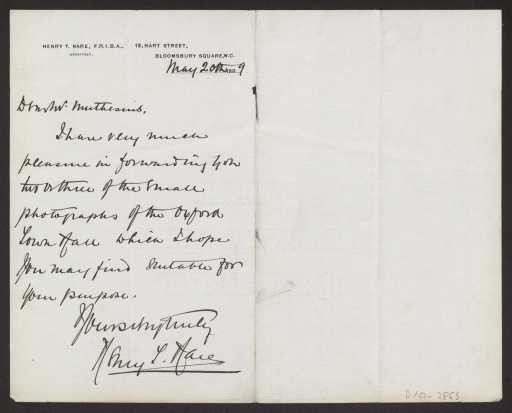 HENRY T. HARE, F.R.I.B.A.,
ARCHITECT.
15, HART STREET,
BLOOMSBURY SQUARE, W.C.
May 20th 189 9
Dear Mr Muthesius,
I have very much
pleasure in forwarding you
two or three of the small
photographs of the Oxford
Town Hall which I hope
You may find suitable for
your purpose.
Yours very truly
Henry T. Hare